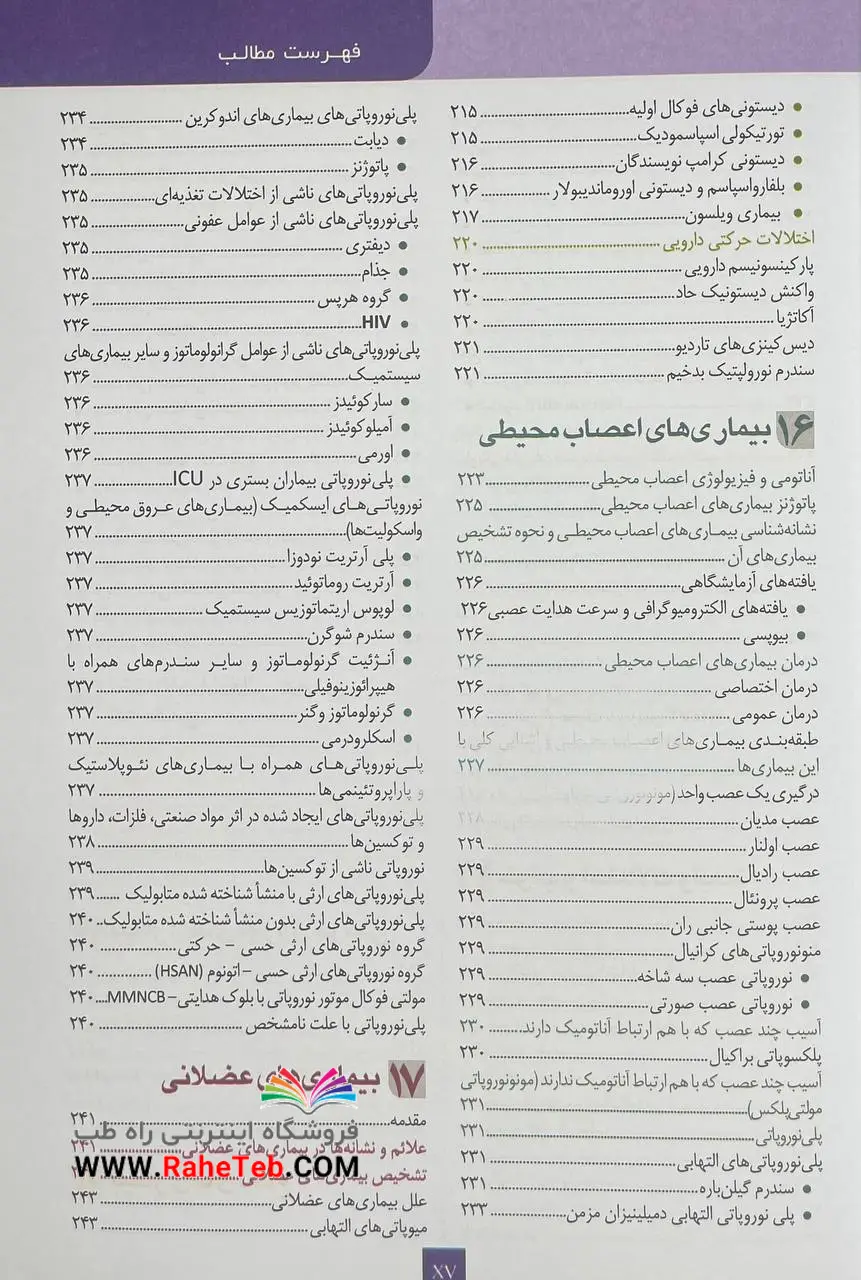 فهرست مطالب
● دیستونی‌های فوکال اولیه ........ ۲۱۵
● تورتیکولی اسپاسمودیک ........ ۲۱۵
● دیستونی کرامپ نویسندگان ........ ۲۱۶
● بلفارواسپاسم و دیستونی اوروماندیبولار ........ ۲۱۶
● بیماری ویلسون ........ ۲۱۷
اختلالات حرکتی دارویی ........ ۲۲۰
پارکینسونیسم دارویی ........ ۲۲۰
واکنش دیستونیک حاد ........ ۲۲۰
آکاتژیا ........ ۲۲۰
دیس‌کینزی‌های تاردیو ........ ۲۲۱
سندرم نورولپتیک بدخیم ........ ۲۲۱
۱۶ بیماری‌های اعصاب محیطی
آناتومی و فیزیولوژی اعصاب محیطی ........ ۲۲۳
پاتوژنز بیماری‌های اعصاب محیطی ........ ۲۲۵
نشانه‌شناسی بیماری‌های اعصاب محیطی و نحوه تشخیص
بیماری‌های آن ........ ۲۲۵
یافته‌های آزمایشگاهی ........ ۲۲۶
● یافته‌های الکترومیوگرافی و سرعت هدایت عصبی ۲۲۶
● بیوپسی ........ ۲۲۶
درمان بیماری‌های اعصاب محیطی ........ ۲۲۶
درمان اختصاصی ........ ۲۲۶
درمان عمومی ........ ۲۲۶
طبقه‌بندی بیماری‌های اعصاب محیطی و آشنایی کلی با
این بیماری‌ها ........ ۲۲۷
درگیری یک عصب واحد
عصب مدیان ........ ۲۲۸
عصب اولنار ........ ۲۲۹
عصب رادیال ........ ۲۲۹
عصب پرونئال ........ ۲۲۹
عصب پوستی جانبی ران ........ ۲۲۹
منونوروپاتی‌های کرانیال ........ ۲۲۹
● نوروپاتی عصب سه شاخه ........ ۲۲۹
● نوروپاتی عصب صورتی ........ ۲۲۹
آسیب چند عصب که با هم ارتباط آناتومیک دارند ........ ۲۳۰
پلکسوپاتی براکیال ........ ۲۳۰
آسیب چند عصب که با هم ارتباط آناتومیک ندارند (مونونوروپاتی
مولتی‌پلکس) ........ ۲۳۱
پلی‌نوروپاتی ........ ۲۳۱
پلی‌نوروپاتی‌های التهابی ........ ۲۳۱
● سندرم گیلن‌باره ........ ۲۳۱
● پلی نوروپاتی التهابی دمیلینیزان مزمن ........ ۲۳۳
پلی‌نوروپاتی‌های بیماری‌های اندوکرین ........ ۲۳۴
● دیابت ........ ۲۳۴
● پاتوژنز ........ ۲۳۵
پلی‌نوروپاتی‌های ناشی از اختلالات تغذیه‌ای ........ ۲۳۵
پلی‌نوروپاتی‌های ناشی از عوامل عفونی ........ ۲۳۵
● دیفتری ........ ۲۳۵
● جذام ........ ۲۳۵
● گروه هرپس ........ ۲۳۶
● HIV ........ ۲۳۶
پلی‌نوروپاتی‌های ناشی از عوامل گرانولوماتوز و سایر بیماری‌های
سیستمیک ........ ۲۳۶
● سارکوئیدز ........ ۲۳۶
● آمیلوکوئیدز ........ ۲۳۶
● اورمی ........ ۲۳۶
● پلی‌نوروپاتی بیماران بستری در ICU ........ ۲۳۷
نوروپاتی‌های ایسکمیک (بیماری‌های عروق محیطی و
واسکولیت‌ها) ........ ۲۳۷
● پلی آرتریت نودوزا ........ ۲۳۷
● آرتریت روماتوئید ........ ۲۳۷
● لوپوس اریتماتوزیس سیستمیک ........ ۲۳۷
● سندرم شوگرن ........ ۲۳۷
● آنژئیت گرنولوماتوز و سایر سندرم‌های همراه با
هیپرائوزینوفیلی ........ ۲۳۷
● گرنولوماتوز وگنر ........ ۲۳۷
● اسکلرودرمی ........ ۲۳۷
پلی‌نوروپاتی‌های همراه با بیماری‌های نئوپلاستیک
و پاراپروتئینمی‌ها ........ ۲۳۷
پلی‌نوروپاتی‌های ایجاد شده در اثر مواد صنعتی، فلزات، داروها
و توکسین‌ها ........ ۲۳۸
نوروپاتی ناشی از توکسین‌ها ........ ۲۳۹
پلی‌نوروپاتی‌های ارثی با منشأ شناخته شده متابولیک ........ ۲۳۹
پلی‌نوروپاتی‌های ارثی بدون منشأ شناخته شده متابولیک .. ۲۴۰
گروه نوروپاتی‌های ارثی حسی – حرکتی ........ ۲۴۰
گروه نوروپاتی‌های ارثی حسی – اتونوم (HSAN) ........ ۲۴۰
مولتی فوکال موتور نوروپاتی با بلوک هدایتی – MMNCB .... ۲۴۰
پلی‌نوروپاتی با علت نامشخص ........ ۲۴۰
۱۷ بیماری‌های عضلانی
مقدمه ........ ۲۴۱
علائم و نشانه‌ها در بیماری‌های عضلانی ........ ۲۴۱
تشخیص بیماری‌های عضلانی
علل بیماری‌های عضلانی ........ ۲۴۳
میوپاتی‌های التهابی ........ ۲۴۳
فروشگاه اینترنتی راه طب
www.RaheTeb.com
XV